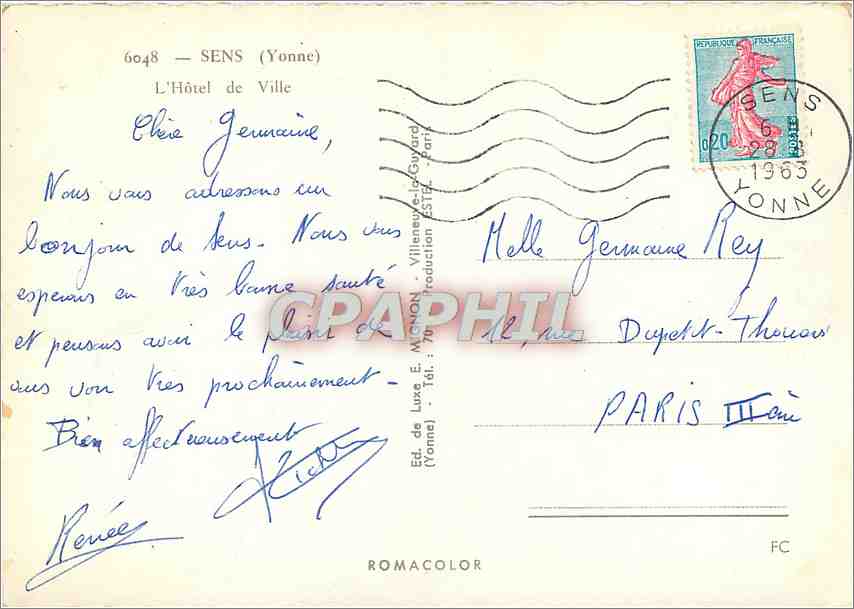 6048 — SENS (Yonne)
L'Hôtel de Ville
Chère Germaine,
Nous vous adressons un
bonjour de Sens. Nous vous
espérons en très bonne santé
et pensons avoir le plaisir de
vous voir très prochainement -
Bien affectueusement
Renée
REPUBLIQUE FRANÇAISE
0,20
POSTES
SENS
6
28
1963
YONNE
Ed. de Luxe E. MIGNON - Villeneuve-la-Guyard
(Yonne) - Tél. : 70 Production ESTEL - Paris
CPAPHIL
Melle Germaine Rey
12, rue Dupetit-Thouars
PARIS III
ROMACOLOR
FC